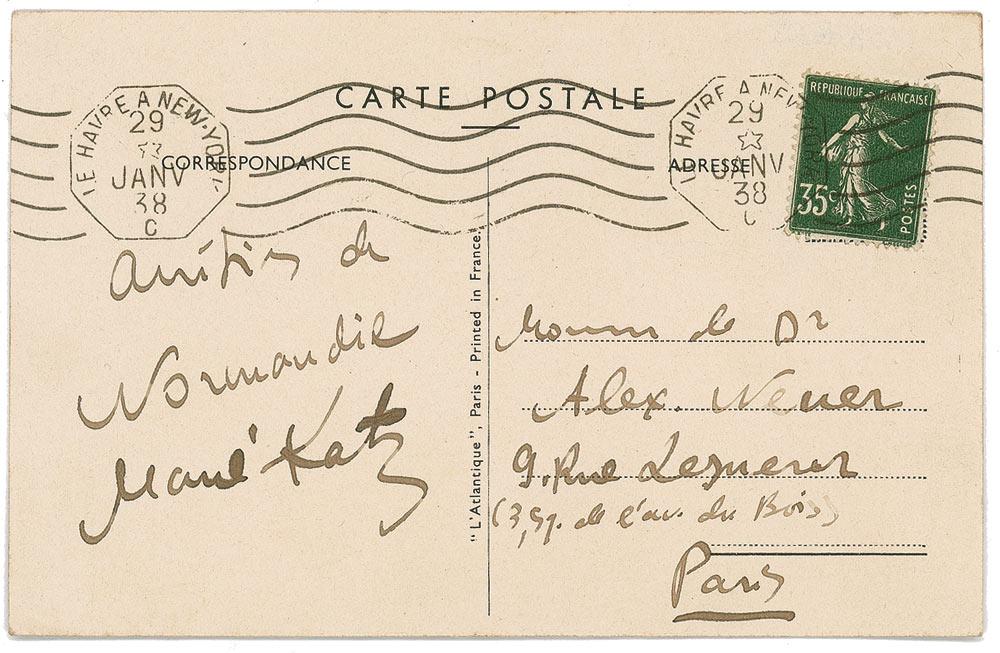 CARTE POSTALE
LE HAVRE A NEW-YORK
29
JANV
38
C
CORRESPONDANCE
HAVRE A NEW
29
JANV
38
C
ADRESSE
REPUBLIQUE FRANÇAISE
35c
POSTES
amitiés de
Normandie
Mané Katz
"L'Atlantique", Paris - Printed in France.
le Dr
Alex. Neuer
9. Rue Lesueur
de l'av. du Bois)
Paris